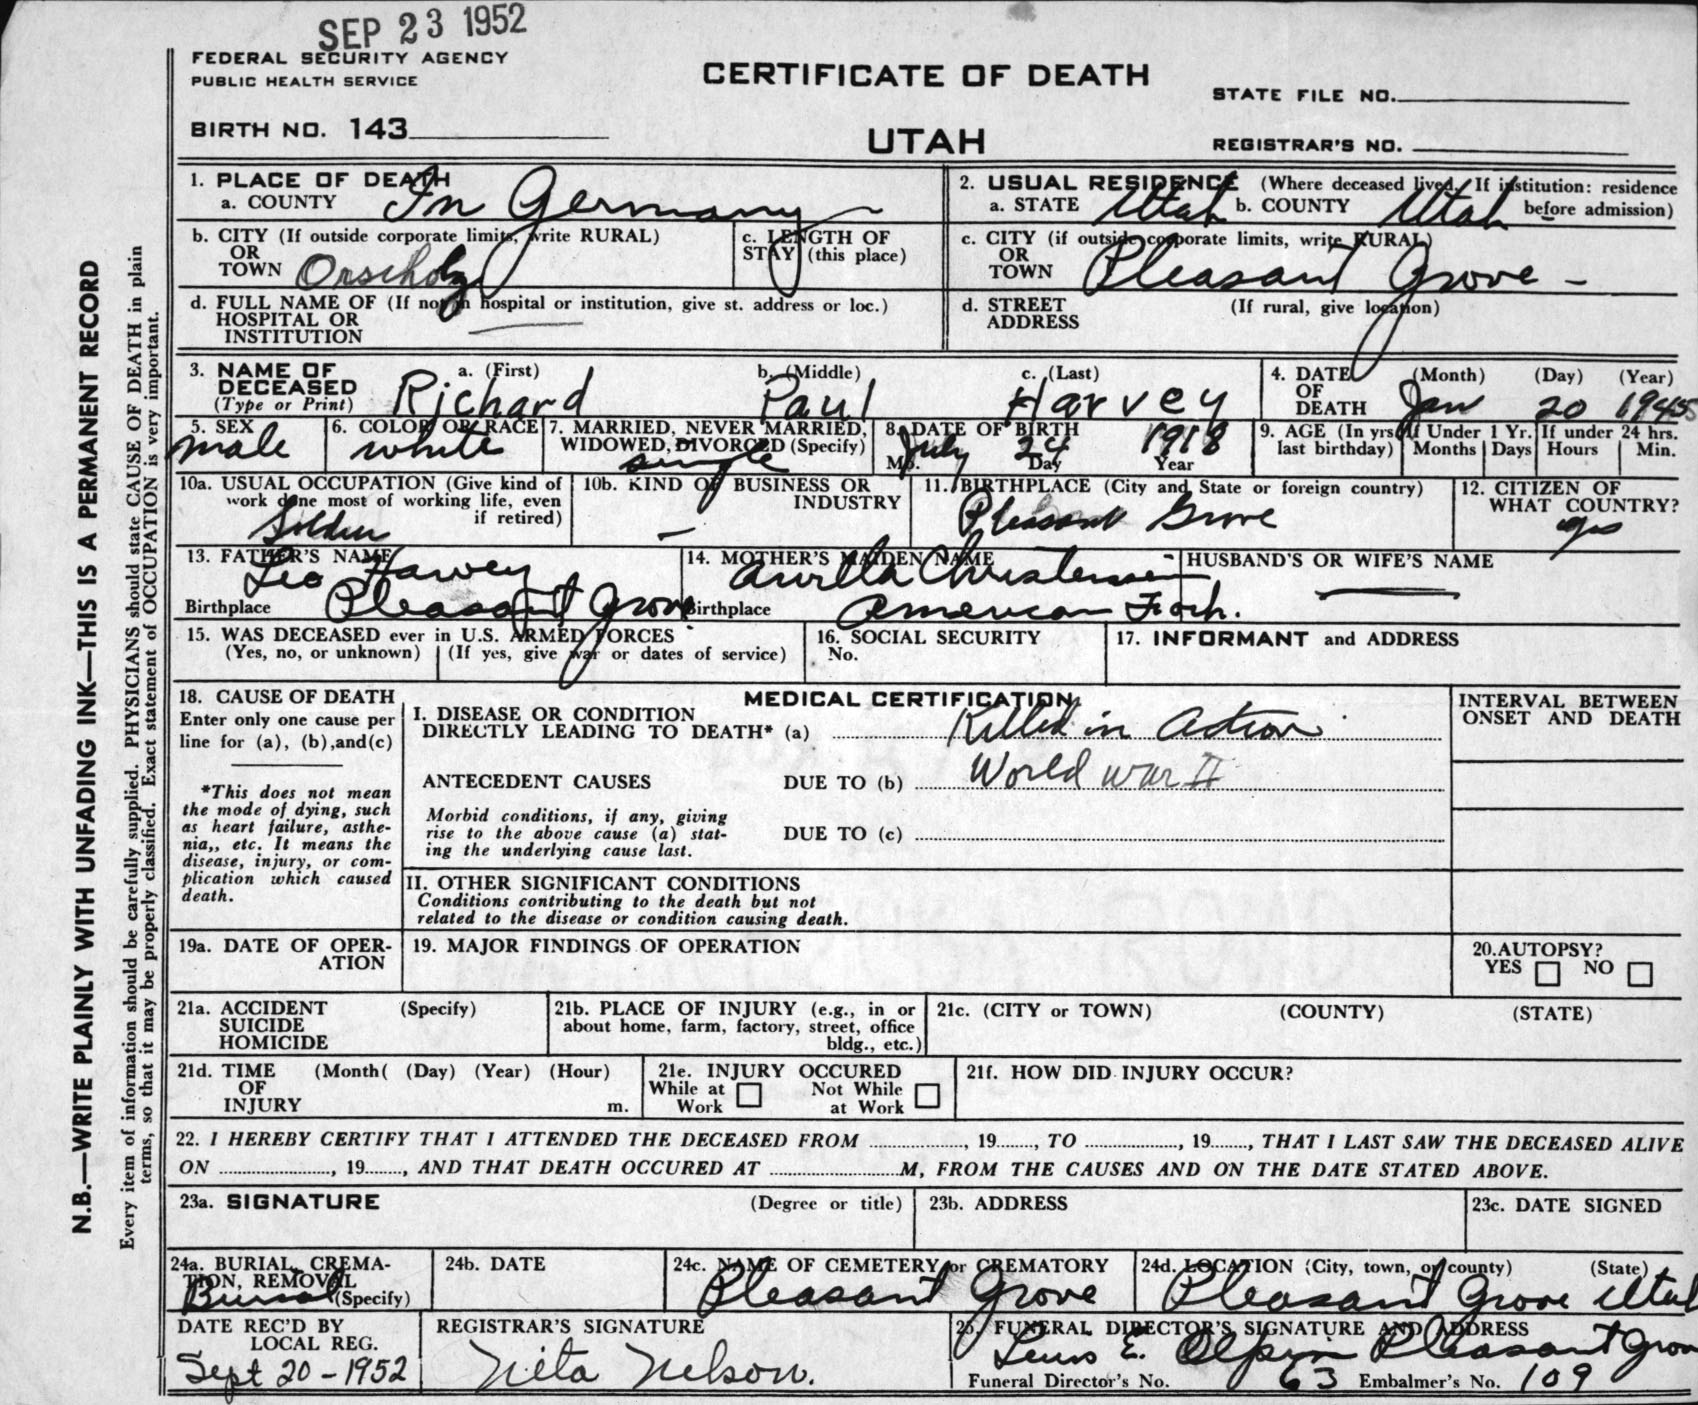 SEP 23 1952
FEDERAL SECURITY AGENCY
PUBLIC HEALTH SERVICE
CERTIFICATE OF DEATH
STATE FILE NO.
BIRTH NO. 143
UTAH
REGISTRAR'S NO.
N.B.—WRITE PLAINLY WITH UNFADING INK—THIS IS A PERMANENT RECORD
Every item of information should be carefully supplied. PHYSICIANS should state CAUSE OF DEATH in plain
terms, so that it may be properly classified. Exact statement of OCCUPATION is very important.
1. PLACE OF DEATH
a. COUNTY In Germany
2. USUAL RESIDENCE (Where deceased lived. If institution: residence
a. STATE Utah b. COUNTY Utah before admission)
b. CITY (If outside corporate limits, write RURAL)
OR
TOWN Orscholz
c. LENGTH OF
STAY (this place)
c. CITY (if outside corporate limits, write RURAL)
OR
TOWN Pleasant Grove -
d. FULL NAME OF (If not in hospital or institution, give st. address or loc.)
HOSPITAL OR
INSTITUTION
d. STREET (If rural, give location)
ADDRESS
3. NAME OF a. (First) b. (Middle) c. (Last)
DECEASED
(Type or Print) Richard Paul Harvey
4. DATE (Month) (Day) (Year)
OF
DEATH Jan 20 1945
5. SEX
male
6. COLOR OR RACE
white
7. MARRIED, NEVER MARRIED,
WIDOWED, DIVORCED (Specify)
single
8. DATE OF BIRTH
July 24 1918
Mo. Day Year
9. AGE (In yrs. last birthday)
If Under 1 Yr.
Months Days
If under 24 hrs.
Hours Min.
10a. USUAL OCCUPATION (Give kind of
work done most of working life, even
if retired)
Soldier
10b. KIND OF BUSINESS OR
INDUSTRY
-
11. BIRTHPLACE (City and State or foreign country)
Pleasant Grove
12. CITIZEN OF
WHAT COUNTRY?
yes
13. FATHER'S NAME
Leo Harvey
Birthplace Pleasant Grove
14. MOTHER'S MAIDEN NAME
Christensen
Birthplace American Fork.
HUSBAND'S OR WIFE'S NAME
15. WAS DECEASED ever in U.S. ARMED FORCES
(Yes, no, or unknown) (If yes, give war or dates of service)
16. SOCIAL SECURITY
No.
17. INFORMANT and ADDRESS
18. CAUSE OF DEATH
Enter only one cause per
line for (a), (b),and(c)
*This does not mean
the mode of dying, such
as heart failure, asthe-
nia,, etc. It means the
disease, injury, or com-
plication which caused
death.
MEDICAL CERTIFICATION
I. DISEASE OR CONDITION
DIRECTLY LEADING TO DEATH* (a) Killed in Action
ANTECEDENT CAUSES DUE TO (b) World war II
Morbid conditions, if any, giving
rise to the above cause (a) stat-
ing the underlying cause last.
DUE TO (c)
INTERVAL BETWEEN
ONSET AND DEATH
II. OTHER SIGNIFICANT CONDITIONS
Conditions contributing to the death but not
related to the disease or condition causing death.
19a. DATE OF OPER-
ATION
19. MAJOR FINDINGS OF OPERATION
20.AUTOPSY?
YES NO
21a. ACCIDENT (Specify)
SUICIDE
HOMICIDE
21b. PLACE OF INJURY (e.g., in or
about home, farm, factory, street, office
bldg., etc.)
21c. (CITY or TOWN) (COUNTY) (STATE)
21d. TIME (Month( (Day) (Year) (Hour)
OF
INJURY m.
21e. INJURY OCCURED
While at Not While
Work at Work
21f. HOW DID INJURY OCCUR?
22. I HEREBY CERTIFY THAT I ATTENDED THE DECEASED FROM ..............., 19......., TO ..............., 19......., THAT I LAST SAW THE DECEASED ALIVE
ON ................., 19......., AND THAT DEATH OCCURED AT ...................M, FROM THE CAUSES AND ON THE DATE STATED ABOVE.
23a. SIGNATURE (Degree or title)
23b. ADDRESS
23c. DATE SIGNED
24a. BURIAL, CREMA-
TION, REMOVAL
Burial (Specify)
24b. DATE
24c. NAME OF CEMETERY or CREMATORY
Pleasant Grove
24d. LOCATION (City, town, or county) (State)
Pleasant Grove Utah
DATE REC'D BY
LOCAL REG.
Sept 20 - 1952
REGISTRAR'S SIGNATURE
Nita Nelson.
25. FUNERAL DIRECTOR'S SIGNATURE AND ADDRESS
E. Olpin Pleasant Grove
Funeral Director's No. 63 Embalmer's No. 109